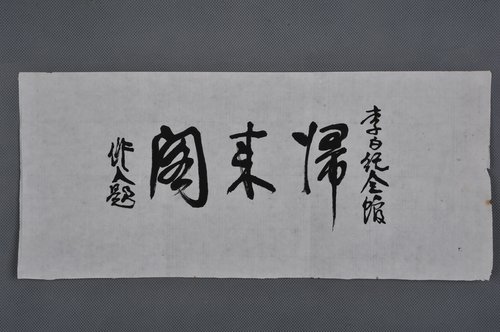 李白纪念馆
帰来阁
作人题